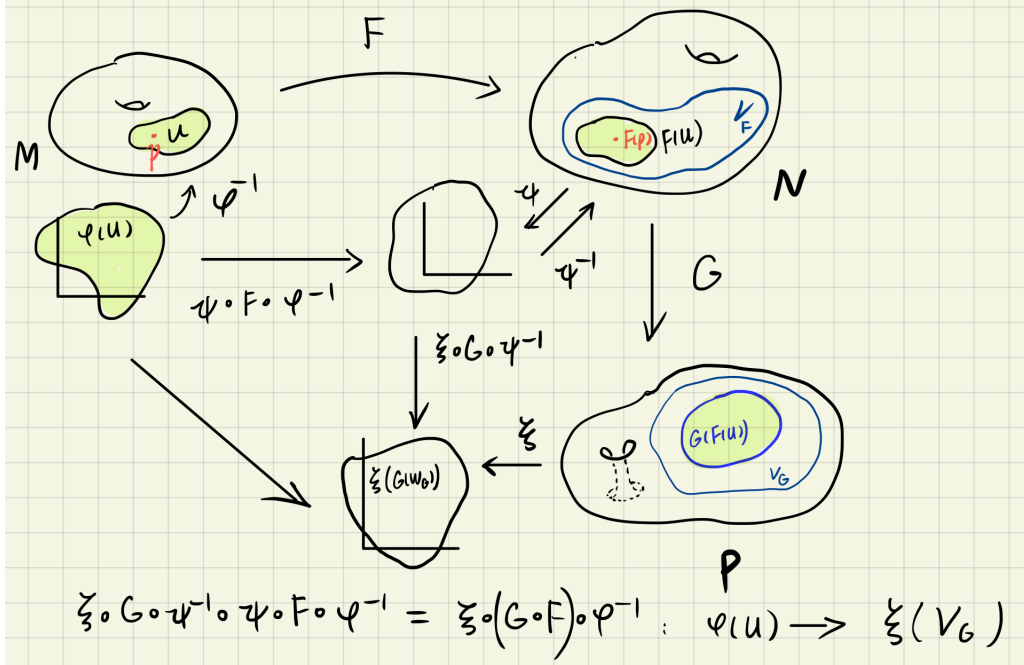 F
M
p
U
φ⁻¹
φ(U)
ψ∘F∘φ⁻¹
F(p)
F(U)
V_F
N
ψ
ψ⁻¹
G
ξ∘G∘ψ⁻¹
ξ
ξ(G(W_G))
G(F(U))
V_G
P
ξ∘G∘ψ⁻¹∘ψ∘F∘φ⁻¹ = ξ∘(G∘F)∘φ⁻¹ : φ(U) ⟶ ξ(V_G)